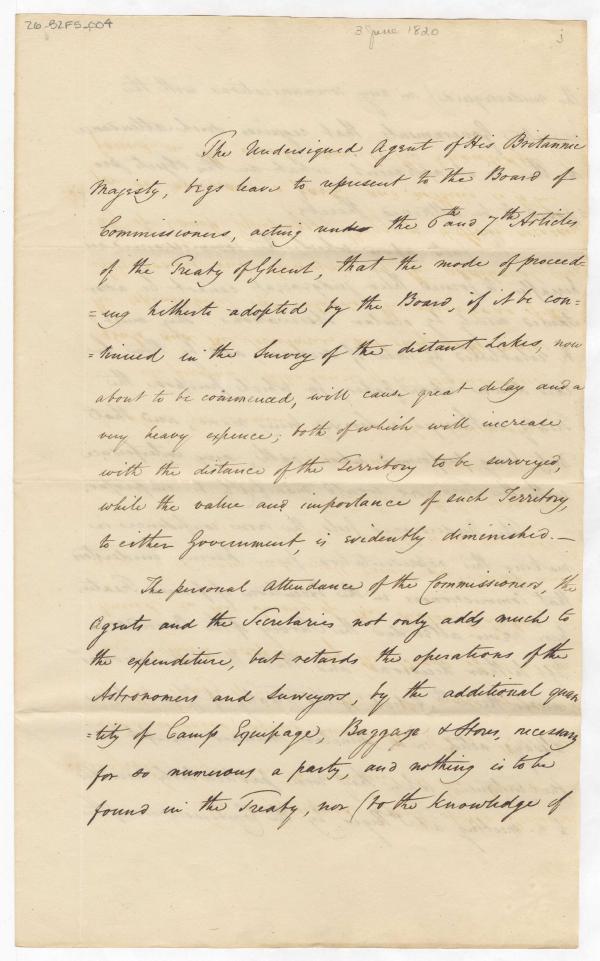 26-B2F5-004
3 June 1820
The Undersigned Agent of His Britannic
Majesty, begs leave to represent to the Board of
Commissioners, acting under the 6th and 7th Articles
of the Treaty of Ghent, that the mode of proceed=
=ing hitherto adopted by the Board, if it be con=
=tinued in the Survey of the distant Lakes, now
about to be commenced, will cause great delay and a
very heavy expence; both of which will increase
with the distance of the Territory to be surveyed,
while the value and importance of such Territory,
to either Government, is evidently diminished.—
The personal attendance of the Commissioners, the
Agents and the Secretaries not only adds much to
the expenditure, but retards the operations of the
Astronomers and Surveyors, by the additional quan
=tity of Camp Equipage, Baggage & Stores, necessary
for so numerous a party, and nothing is to be
found in the Treaty, nor (to the knowledge of